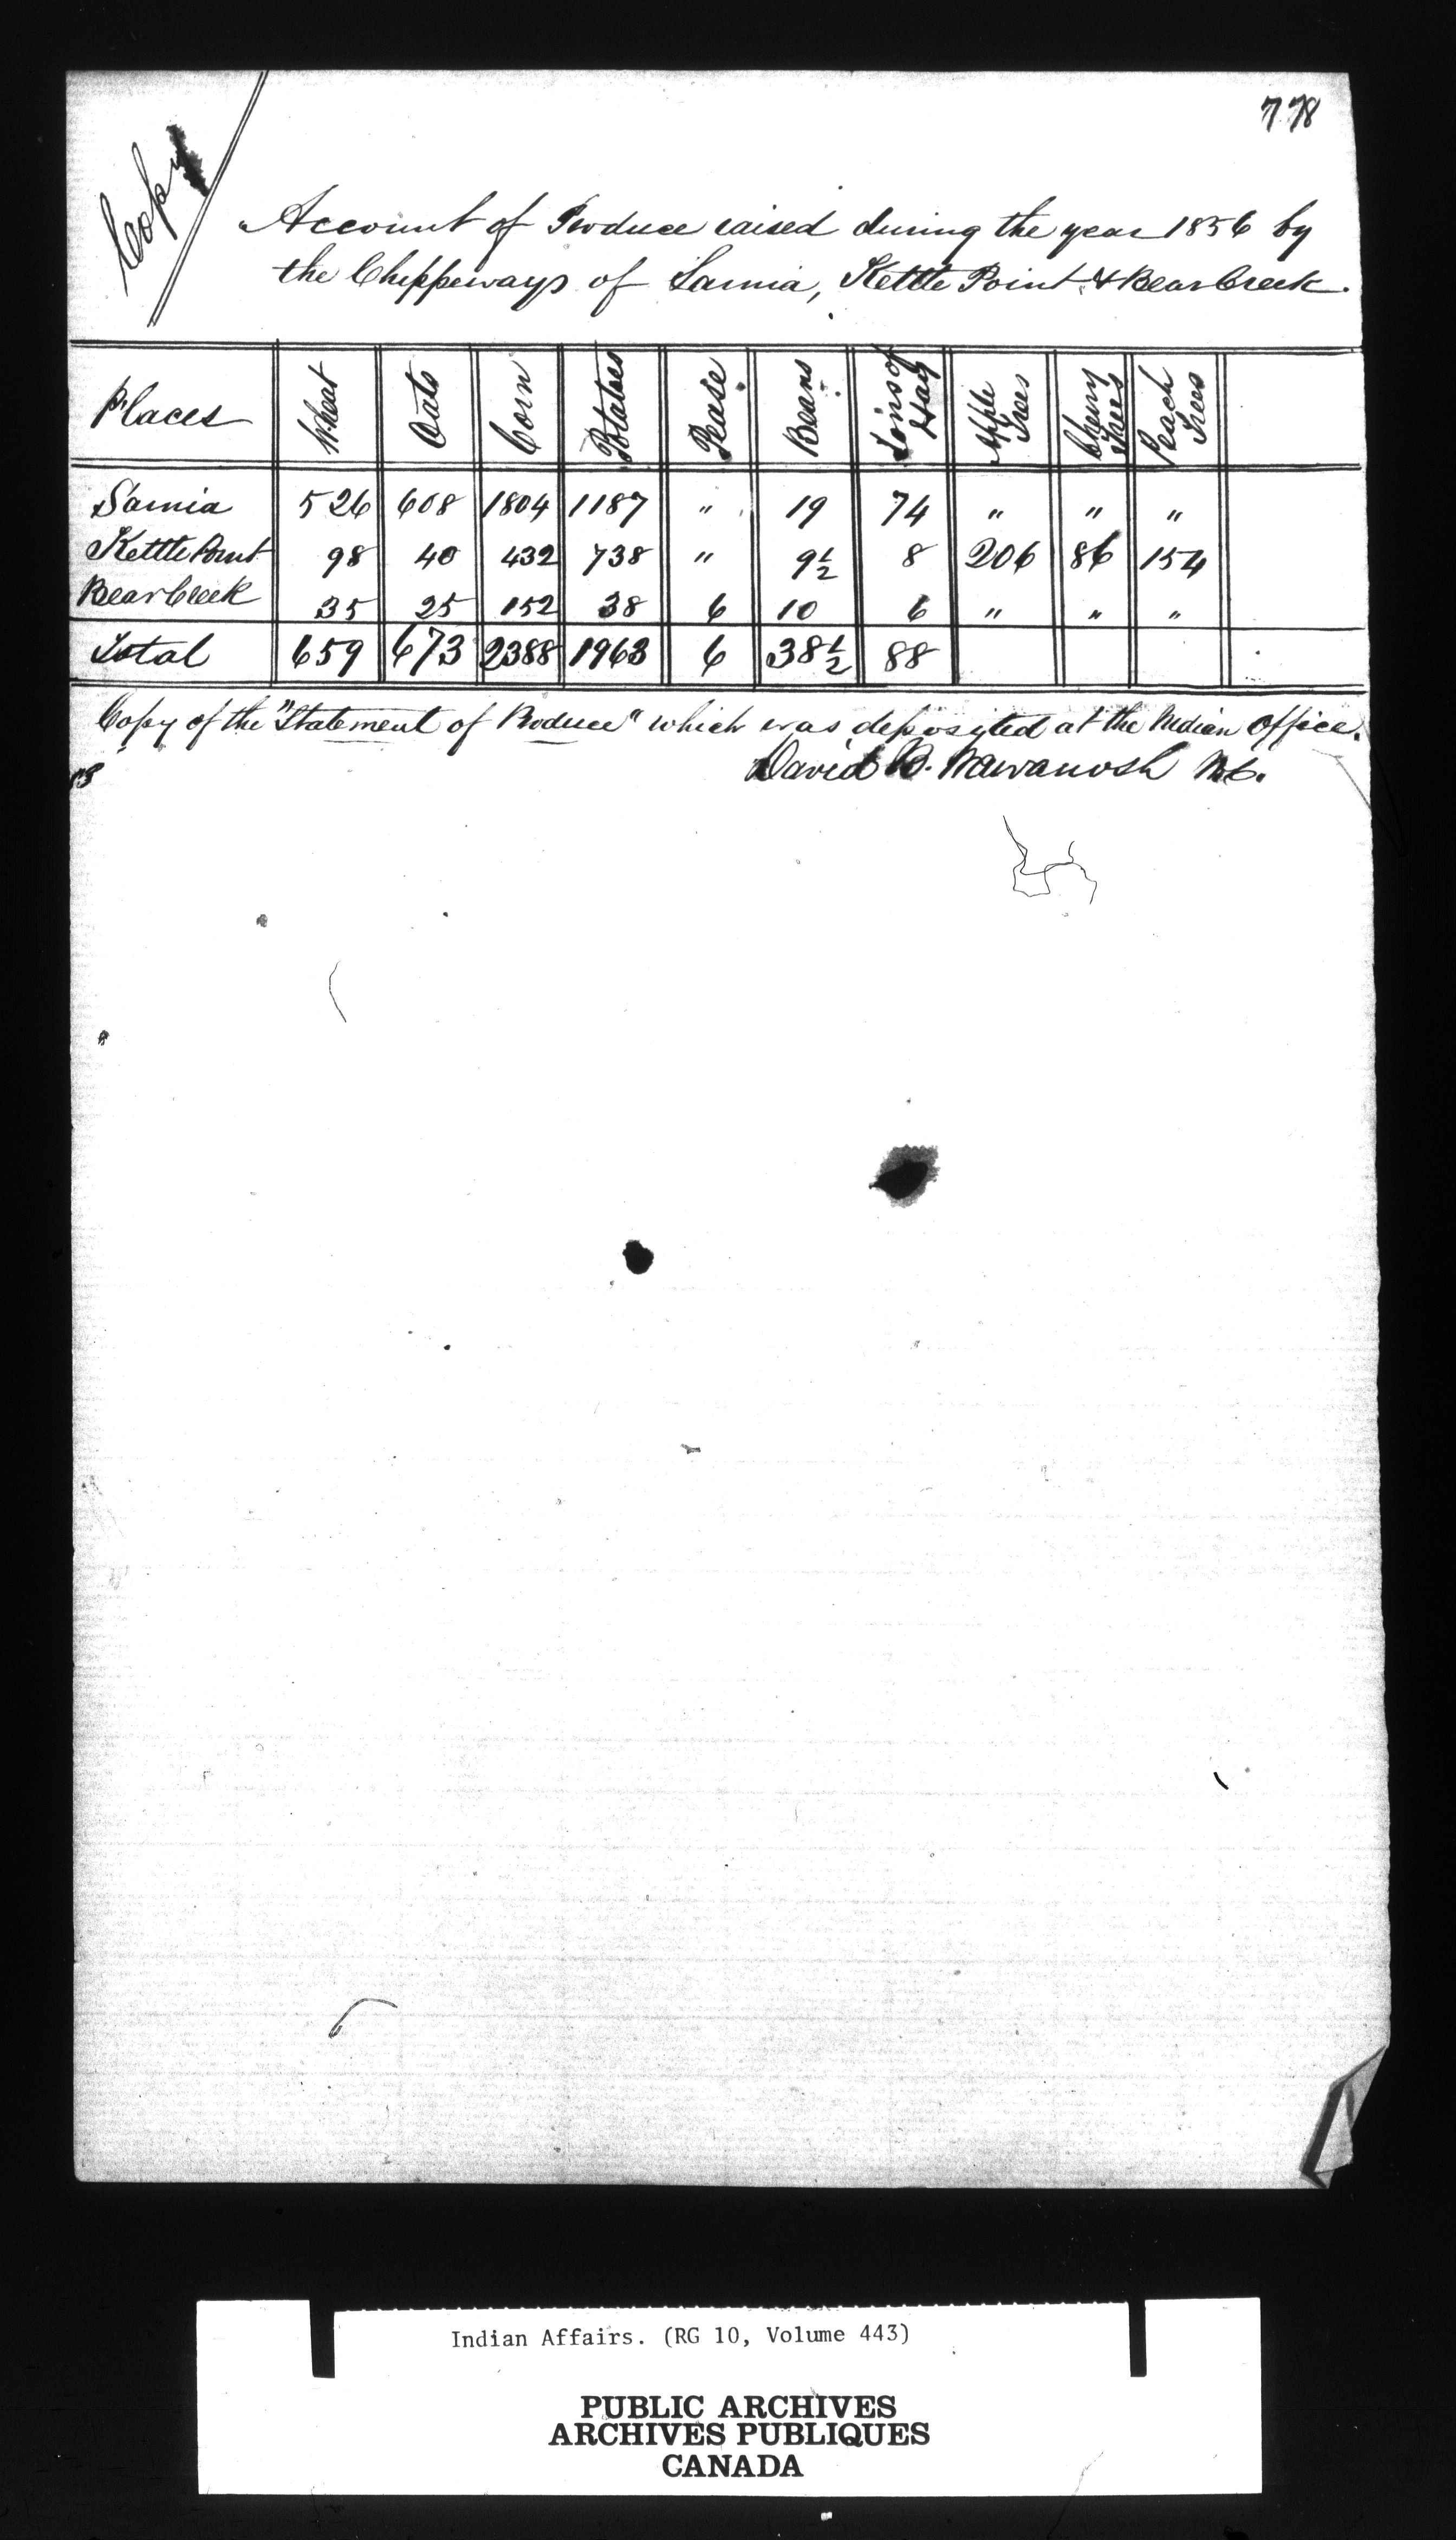 778
Copy
Account of Produce raised during the year 1856 by
the Chippeways of Sarnia, Kettle Point & Bear Creek.
Places Wheat Oats Corn Potatoes Pease Beans Tons of Hay Apple Trees Cherry Trees Peach Trees
Sarnia 526 608 1804 1187 " 19 74 " " "
Kettle Point 98 40 432 738 " 9½ 8 206 86 154
Bear Creek 35 25 152 38 6 10 6 " " "
Total 659 673 2388 1963 6 38½ 88
Copy of the "Statement of Produce" which was deposited at the Indian Office.
David B. Wawanosh
Indian Affairs. (RG 10, Volume 443)
PUBLIC ARCHIVES
ARCHIVES PUBLIQUES
CANADA